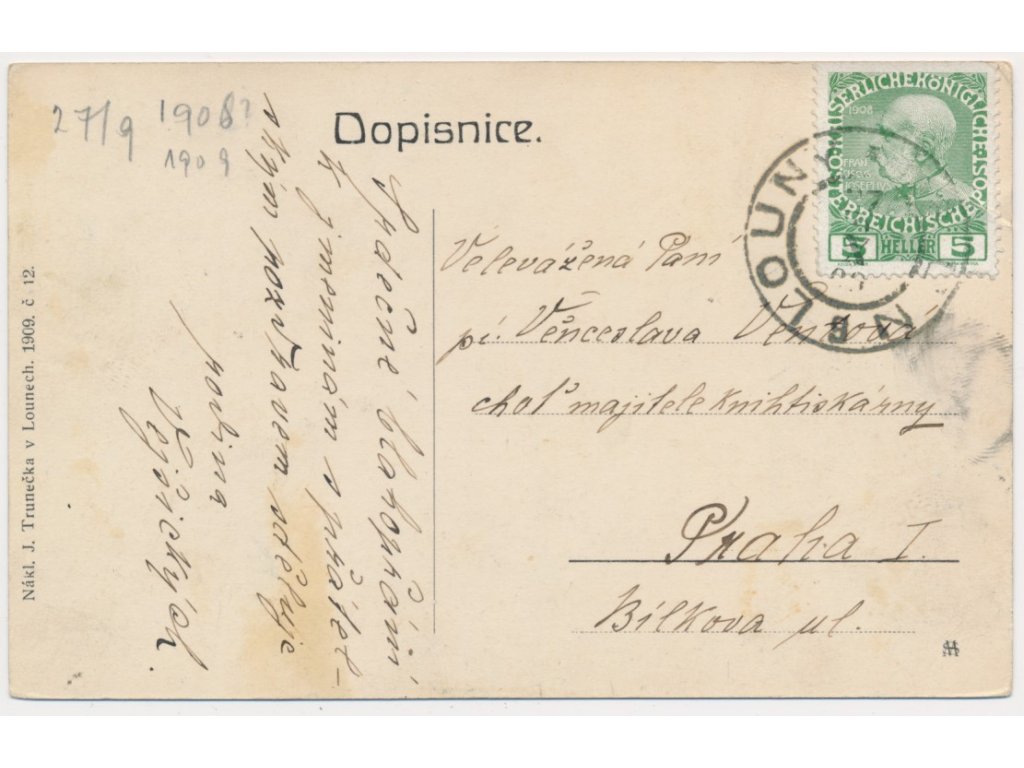 27/9 1908?
1909
Dopisnice.
Srdečné blahopřání
k jmeninám s přátel-
ským pozdravem sděluje
rodina
Nákl. J. Trunečka v Lounech. 1909. č 12.
KAISERLICHE KÖNIGLICHE
ÖSTERREICHISCHE POST
1908
FRAN
JOSEPHUS
5 HELLER 5
LOUNY
LAUN
Velevážená Paní
pí. Věnceslava
choť majitele knihtiskárny
Praha I.
Bílkova ul.